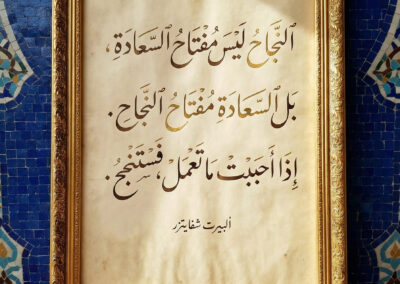 النَّجَاحُ لَيْسَ مُفْتَاحُ السَّعَادَةِ،
بَل السَّعَادَةِ مُفْتَاحُ النَّجَاحِ.
إِذَا أَحَبَبْتَ مَا تَعْمَلْ، فَسْتَنْجَحُ.
البيرت شفايتزر